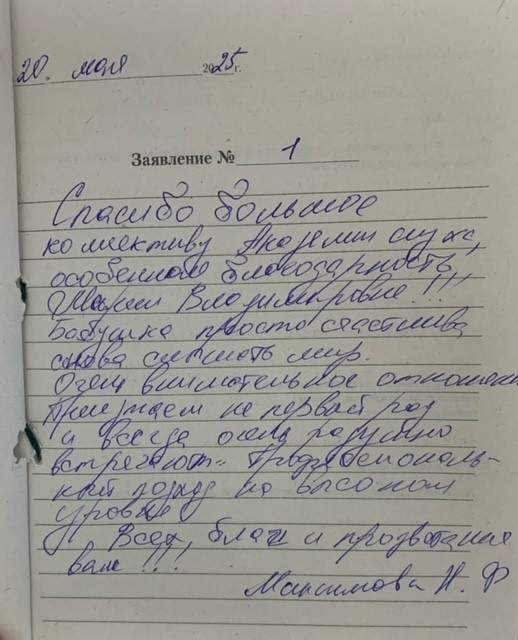 20. мая 2025г.
Заявление № 1
Спасибо большое
коллективу Академии слуха,
особенная благодарность
Марии Владимировне!!!
Бабушка просто счастлива
снова слышать мир.
Очень внимательное отношение
Приезжаем не первый раз
и всегда очень радушно
встречают. Профессиональ-
ный подход на высоком
уровне
Всех благ и процветания
вам!!!
Максимова Н. Ф